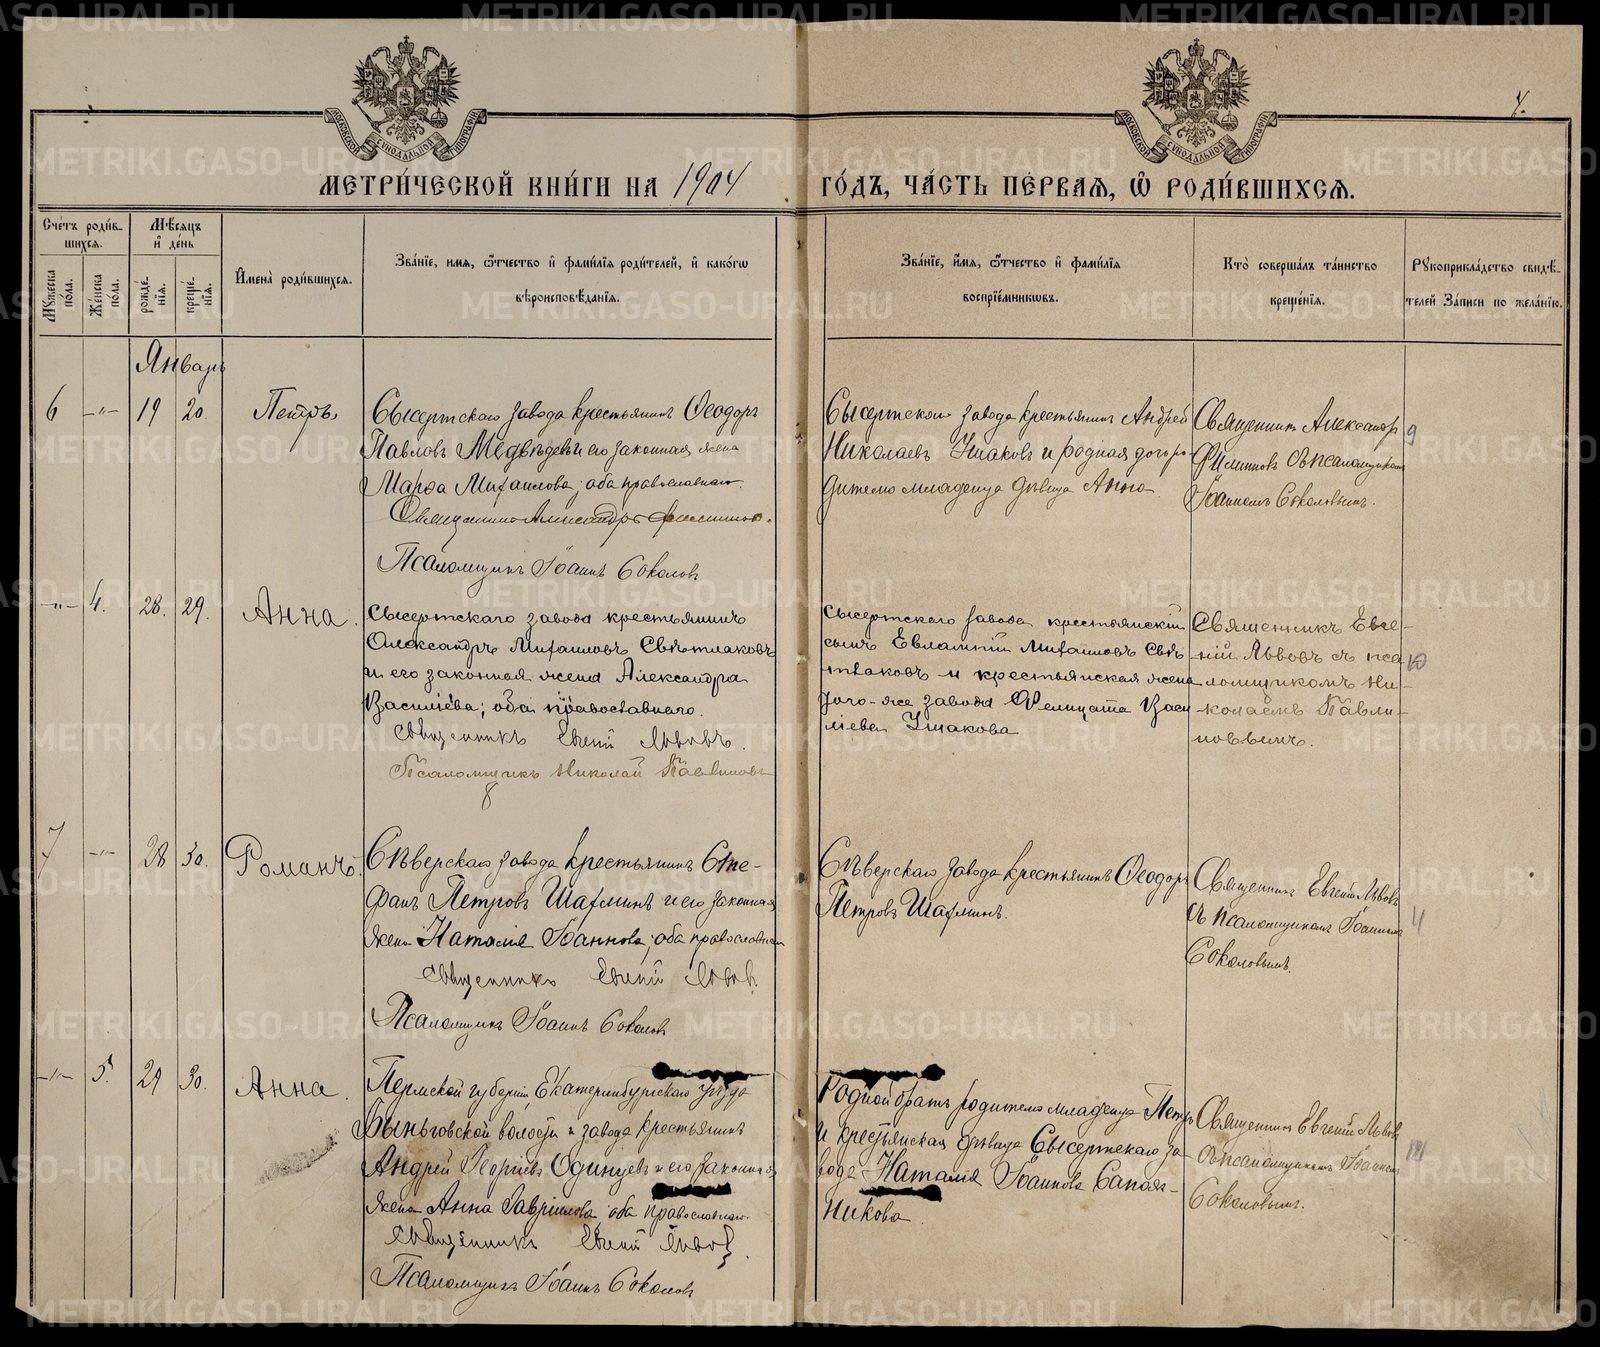 METRIKI.GASO-URAL.RU
МОСКОВСКОЙ СѴНОДАЛЬНОЙ ТИПОГРАФІИ
МОСКОВСКОЙ СѴНОДАЛЬНОЙ ТИПОГРАФІИ
4.
МЕТРИ́ЧЕСКОЙ КНИ́ГИ НА 1904 ГО́ДЪ, ЧА́СТЬ ПЕ́РВАѦ, Ѡ҆ РОДИ́ВШИХСѦ.
Сче́тъ роди́вшихсѧ.
Мѣ́сѧцъ и҆ де́нь
Мꙋ́жеска по́ла.
Же́нска по́ла.
рожде́нїѧ.
креще́нїѧ.
И҆мена̀ роди́вшихсѧ.
Зва́нїе, и҆́мѧ, ѻ҆́тчество и҆ фами́лїѧ роди́телей, и҆ како́гѡ
вѣроисповѣ́данїѧ.
Зва́нїе, и҆́мѧ, ѻ҆́тчество и҆ фами́лїѧ
воспрїе́мникѡвъ.
Кто̀ соверша́лъ та́инство
креще́нїѧ.
Рꙋкоприкла́дство свидѣ́телей За́писи по жела́нїю.
Январь
6 -"- 19 20. Петръ
Сысертскаго завода крестьянинъ Ѳеодоръ
Павловъ Медвѣдевъ и его законная жена
Марѳа Михаилова; оба православнаго.
Священникъ Александръ Филипповъ.
Псаломщикъ Іоаннъ Соколовъ
Сысертскаго завода крестьянинъ Андрей
Николаевъ Ушаковъ и родная дочь родителю младенца дѣвица Анна.
Священникъ Александръ
Филипповъ съ псаломщикомъ
Іоанномъ Соколовымъ.
9
-"- 4. 28. 29. Анна.
Сысертскаго завода крестьянинъ
Александръ Михаиловъ Свѣтлаковъ
и его законная жена Александра
Василіева; оба православнаго.
Священникъ Евгеній Львовъ.
Псаломщикъ Николай Павлиновъ
8
Сысертскаго завода крестьянскій
сынъ Евлампій Михаиловъ Свѣтлаковъ и крестьянская жена
того-же завода Фелицата Василіева Ушакова
Священникъ Евгеній Львовъ съ псаломщикомъ Николаемъ Павлиновымъ.
10
7 -"- 28 30. Романъ.
Сѣверскаго завода крестьянинъ Стефанъ Петровъ Шахминъ и его законная
жена Наталія Іоаннова; оба православнаго
Священникъ Евгеній Львовъ.
Псаломщикъ Іоаннъ Соколовъ
Сѣверскаго завода крестьянинъ Ѳеодоръ
Петровъ Шахминъ.
Священникъ Евгеній Львовъ
съ псаломщикомъ Іоанномъ
Соколовымъ.
-"- 5. 29 30. Анна.
Пермской губерніи, Екатеринбургскаго уѣзда
Быньговской волости и завода крестьянинъ
Андрей Георгіевъ Одинцевъ и его законная
жена Анна Гавріилова; оба православнаго.
Священникъ Евгеній Львовъ.
Псаломщикъ Іоаннъ Соколовъ
Родной братъ родителю младенца Петръ
и крестьянская дѣвица Сысертскаго завода Наталія Іоаннова Сапожникова.
Священникъ Евгеній Львовъ
съ псаломщикомъ Іоанномъ
Соколовымъ.